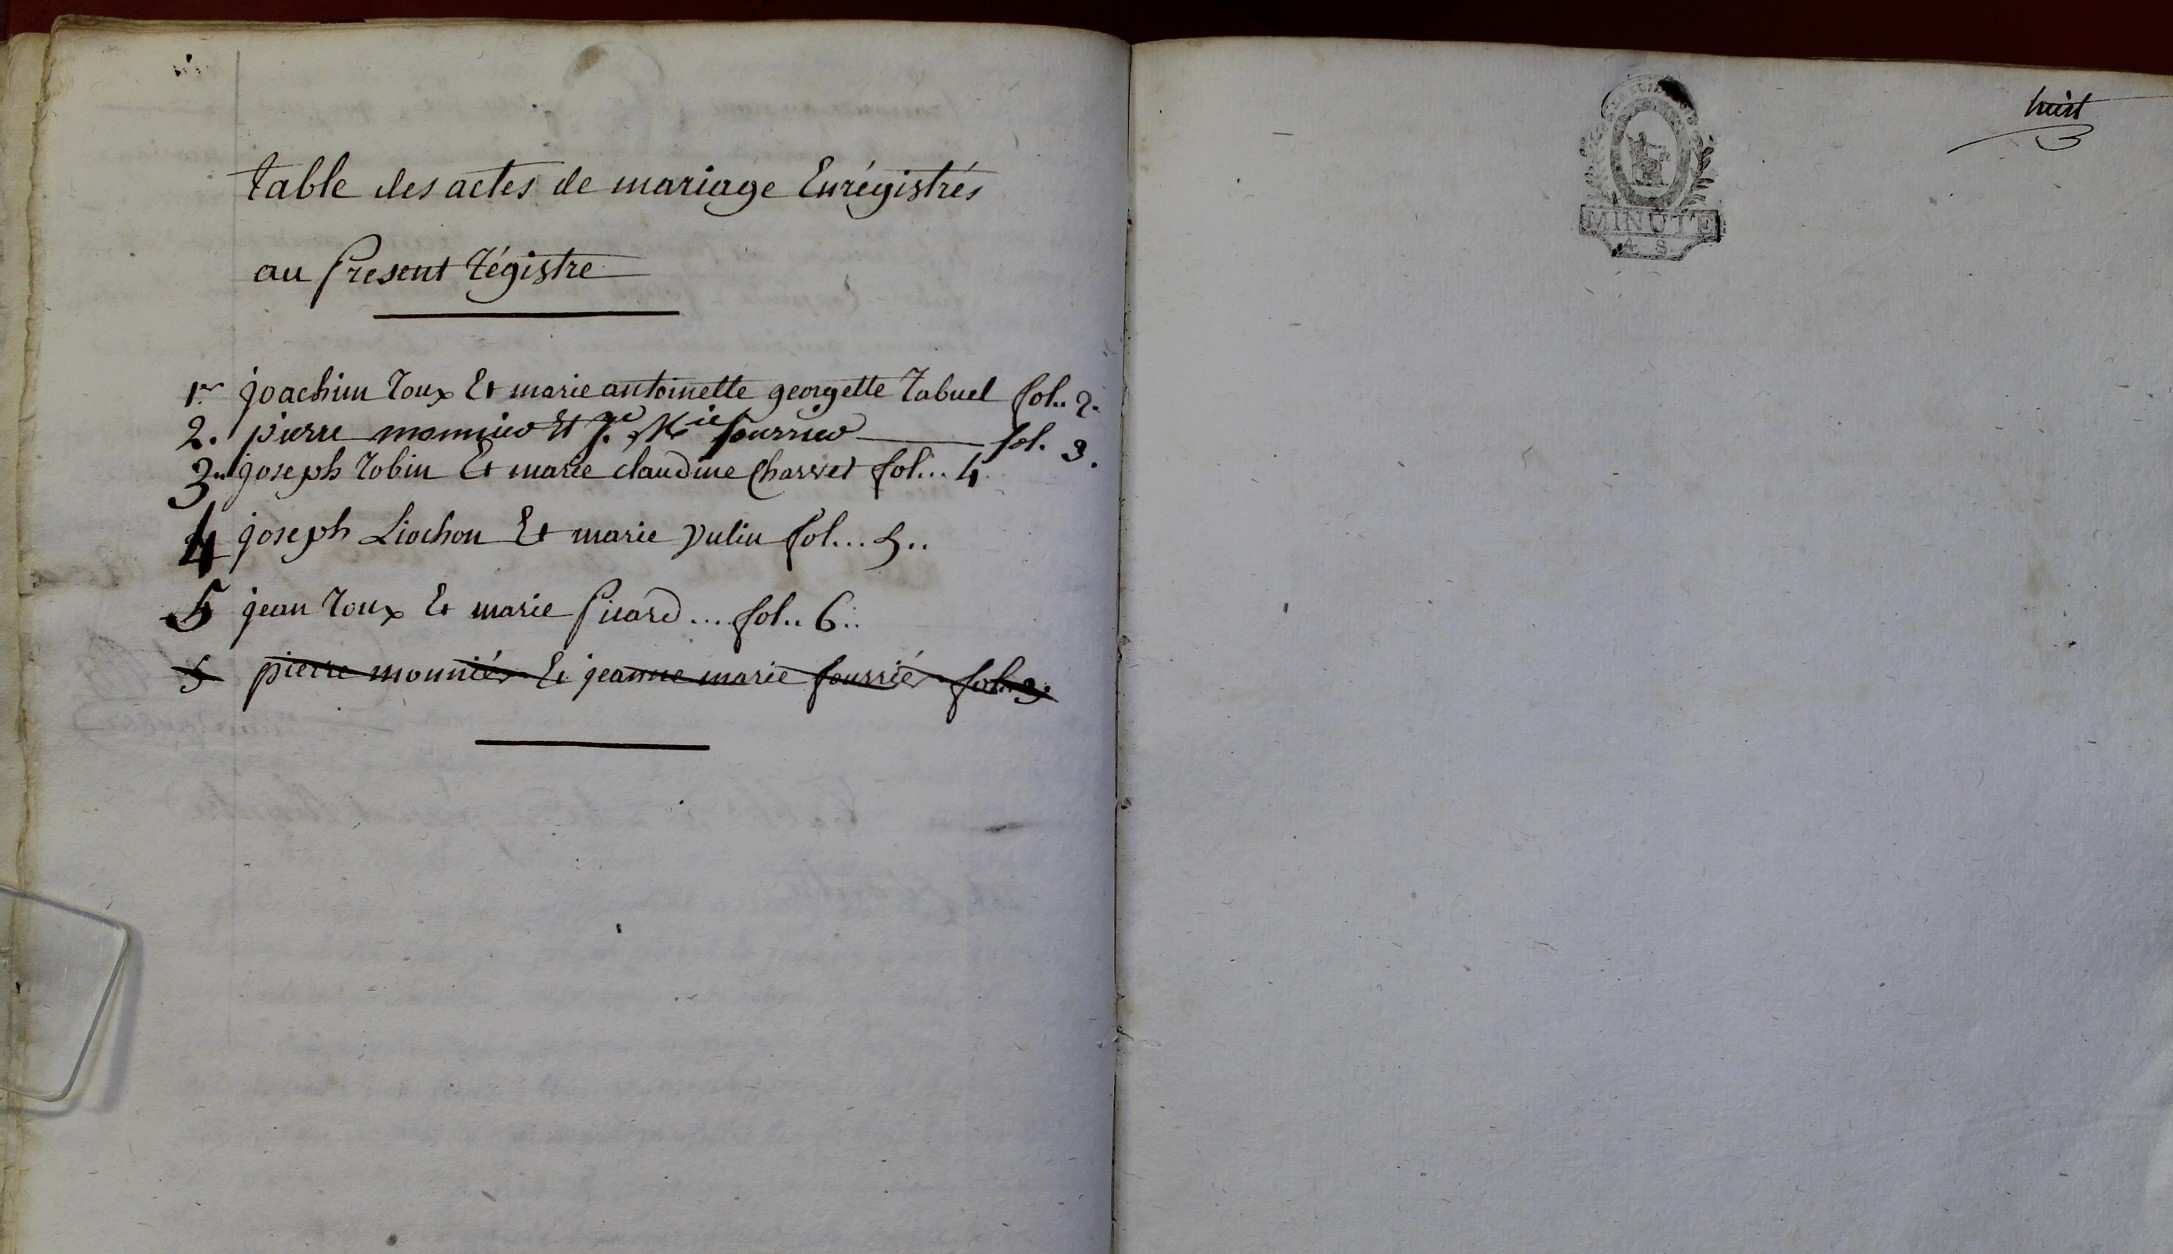 table des actes de mariage Enrégistrés
au present régistre
1er joachim roux Et marie antoinette georgette rabuel fol.. 2.
2. pierre monnier Et Je. Mie fourrier fol. 3.
3.. joseph robin Et marie claudine Charvet fol... 4
4 joseph Liochon Et marie vulin fol... 5..
5 jean roux Et marie picard... fol.. 6..
5 pierre monniér Et jeanne marie fourriér fol. 3.
huit
MINUTE
A. S.